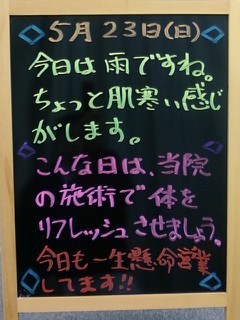 5月23日(日)
今日は雨ですね。
ちょっと肌寒い感じ
がします。
こんな日は、当院
の施術で体を
リフレッシュさせましょう。
今日も一生懸命営業
してます!!